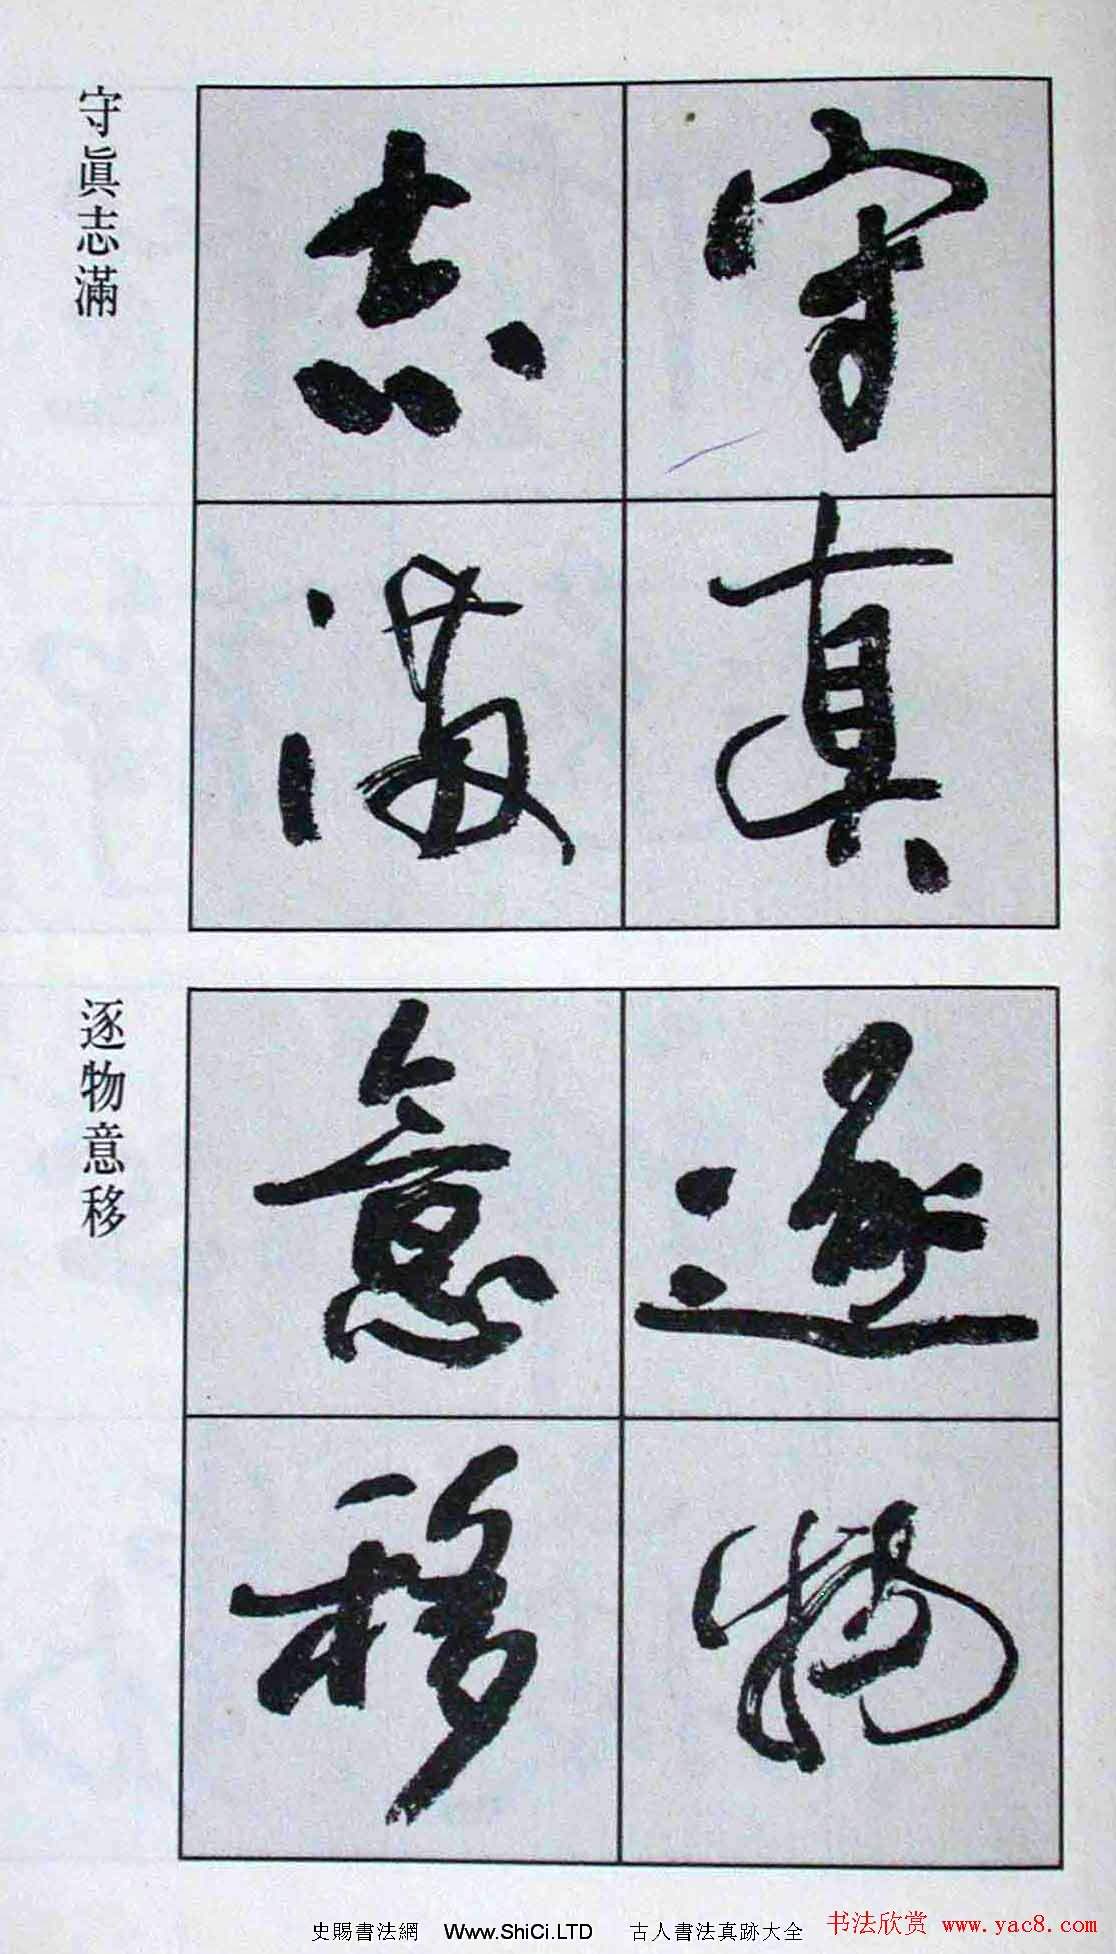 守真
志滿
守眞志滿
逐物
意移
逐物意移
史賜書法網 Www.ShiCi.LTD 古人書法真跡大全
书法欣赏 www.yac8.com